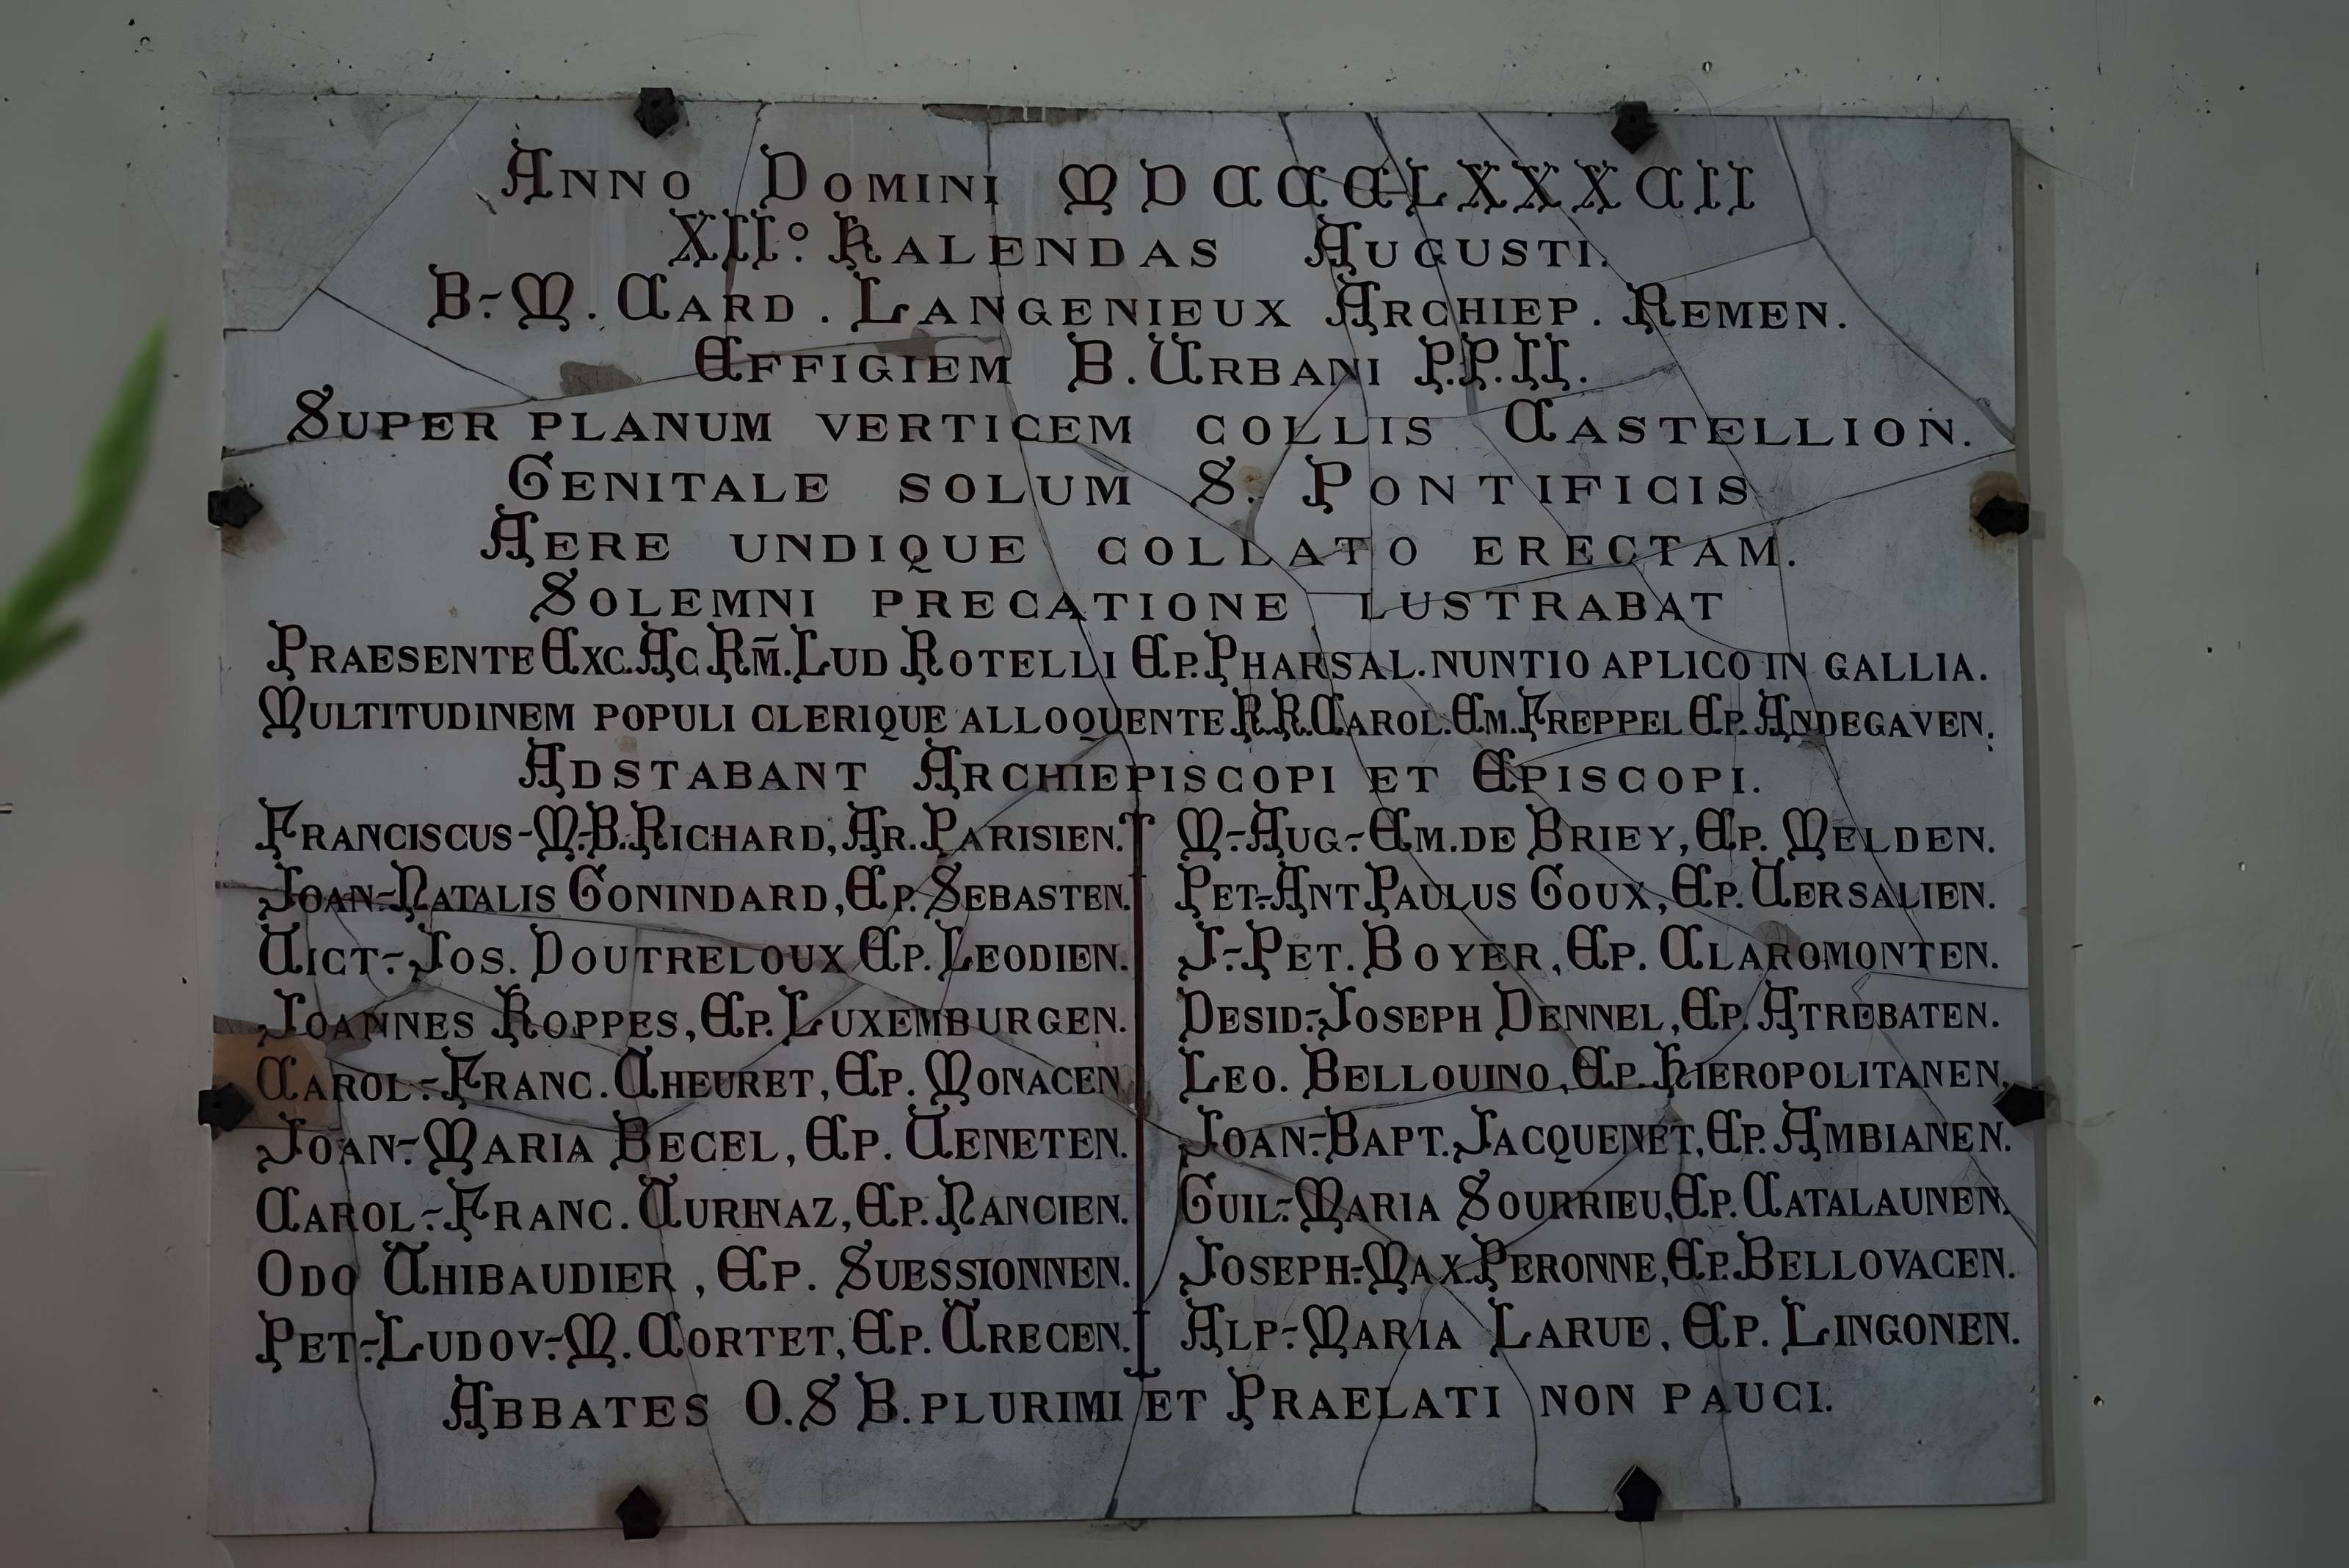 ANNO DOMINI MDCCCLXXXVII
XII° KALENDAS AUGUSTI.
B.-M. CARD. LANGENIEUX ARCHIEP. REMEN.
EFFIGIEM B. URBANI P.P. II.
SUPER PLANUM VERTICEM COLLIS CASTELLION.
GENITALE SOLUM S. PONTIFICIS
AERE UNDIQUE COLLATO ERECTAM.
SOLEMNI PRECATIONE LUSTRABAT
PRAESENTE EXC. AC RM̃. LUD ROTELLI EP. PHARSAL. NUNTIO APLICO IN GALLIA.
MULTITUDINEM POPULI CLERIQUE ALLOQUENTE R.R. CAROL. EM. FREPPEL EP. ANDEGAVEN.
ADSTABANT ARCHIEPISCOPI ET EPISCOPI.
FRANCISCUS-M.-B. RICHARD, AR. PARISIEN.
JOAN.-NATALIS GONINDARD, EP. SEBASTEN.
VICT.-JOS. DOUTRELOUX EP. LEODIEN.
JOANNES KOPPES, EP. LUXEMBURGEN.
CAROL.-FRANC. THEURET, EP. MONACEN
JOAN.-MARIA BECEL, EP. VENETEN.
CAROL.-FRANC. TURINAZ, EP. NANCIEN.
ODO THIBAUDIER, EP. SUESSIONNEN.
PET.-LUDOV.-M. CORTET, EP. TRECEN.
M.-AUG.-EM. DE BRIEY, EP. MELDEN.
PET.-ANT PAULUS GOUX, EP. VERSALIEN.
J.-PET. BOYER, EP. CLAROMONTEN.
DESID.-JOSEPH DENNEL, EP. ATREBATEN.
LEO. BELLOUINO, EP. HIEROPOLITANEN.
JOAN.-BAPT. JACQUENET, EP. AMBIANEN.
GUIL.-MARIA SOURRIEU, EP. CATALAUNEN.
JOSEPH.-MAX. PERONNE, EP. BELLOVACEN.
ALP.-MARIA LARUE, EP. LINGONEN.
ABBATES O.S B. PLURIMI ET PRAELATI NON PAUCI.